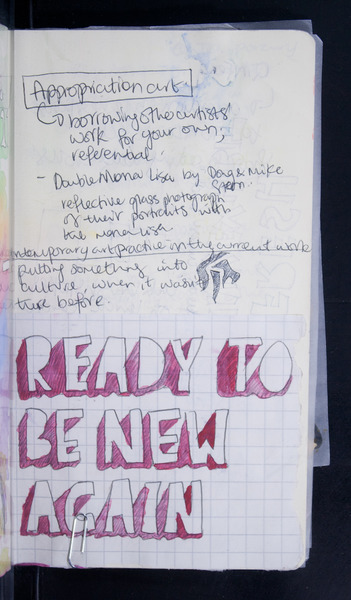 Appropriation art
borrowing other artists'
work for your own,
referential.
- Double Mona Lisa by Doug & Mike
Starn.
reflective glass photograph
of their portraits with
the mona lisa.
contemporary art practice in the current world
putting something into
culture, when it wasn't
there before.
READY TO
BE NEW
AGAIN